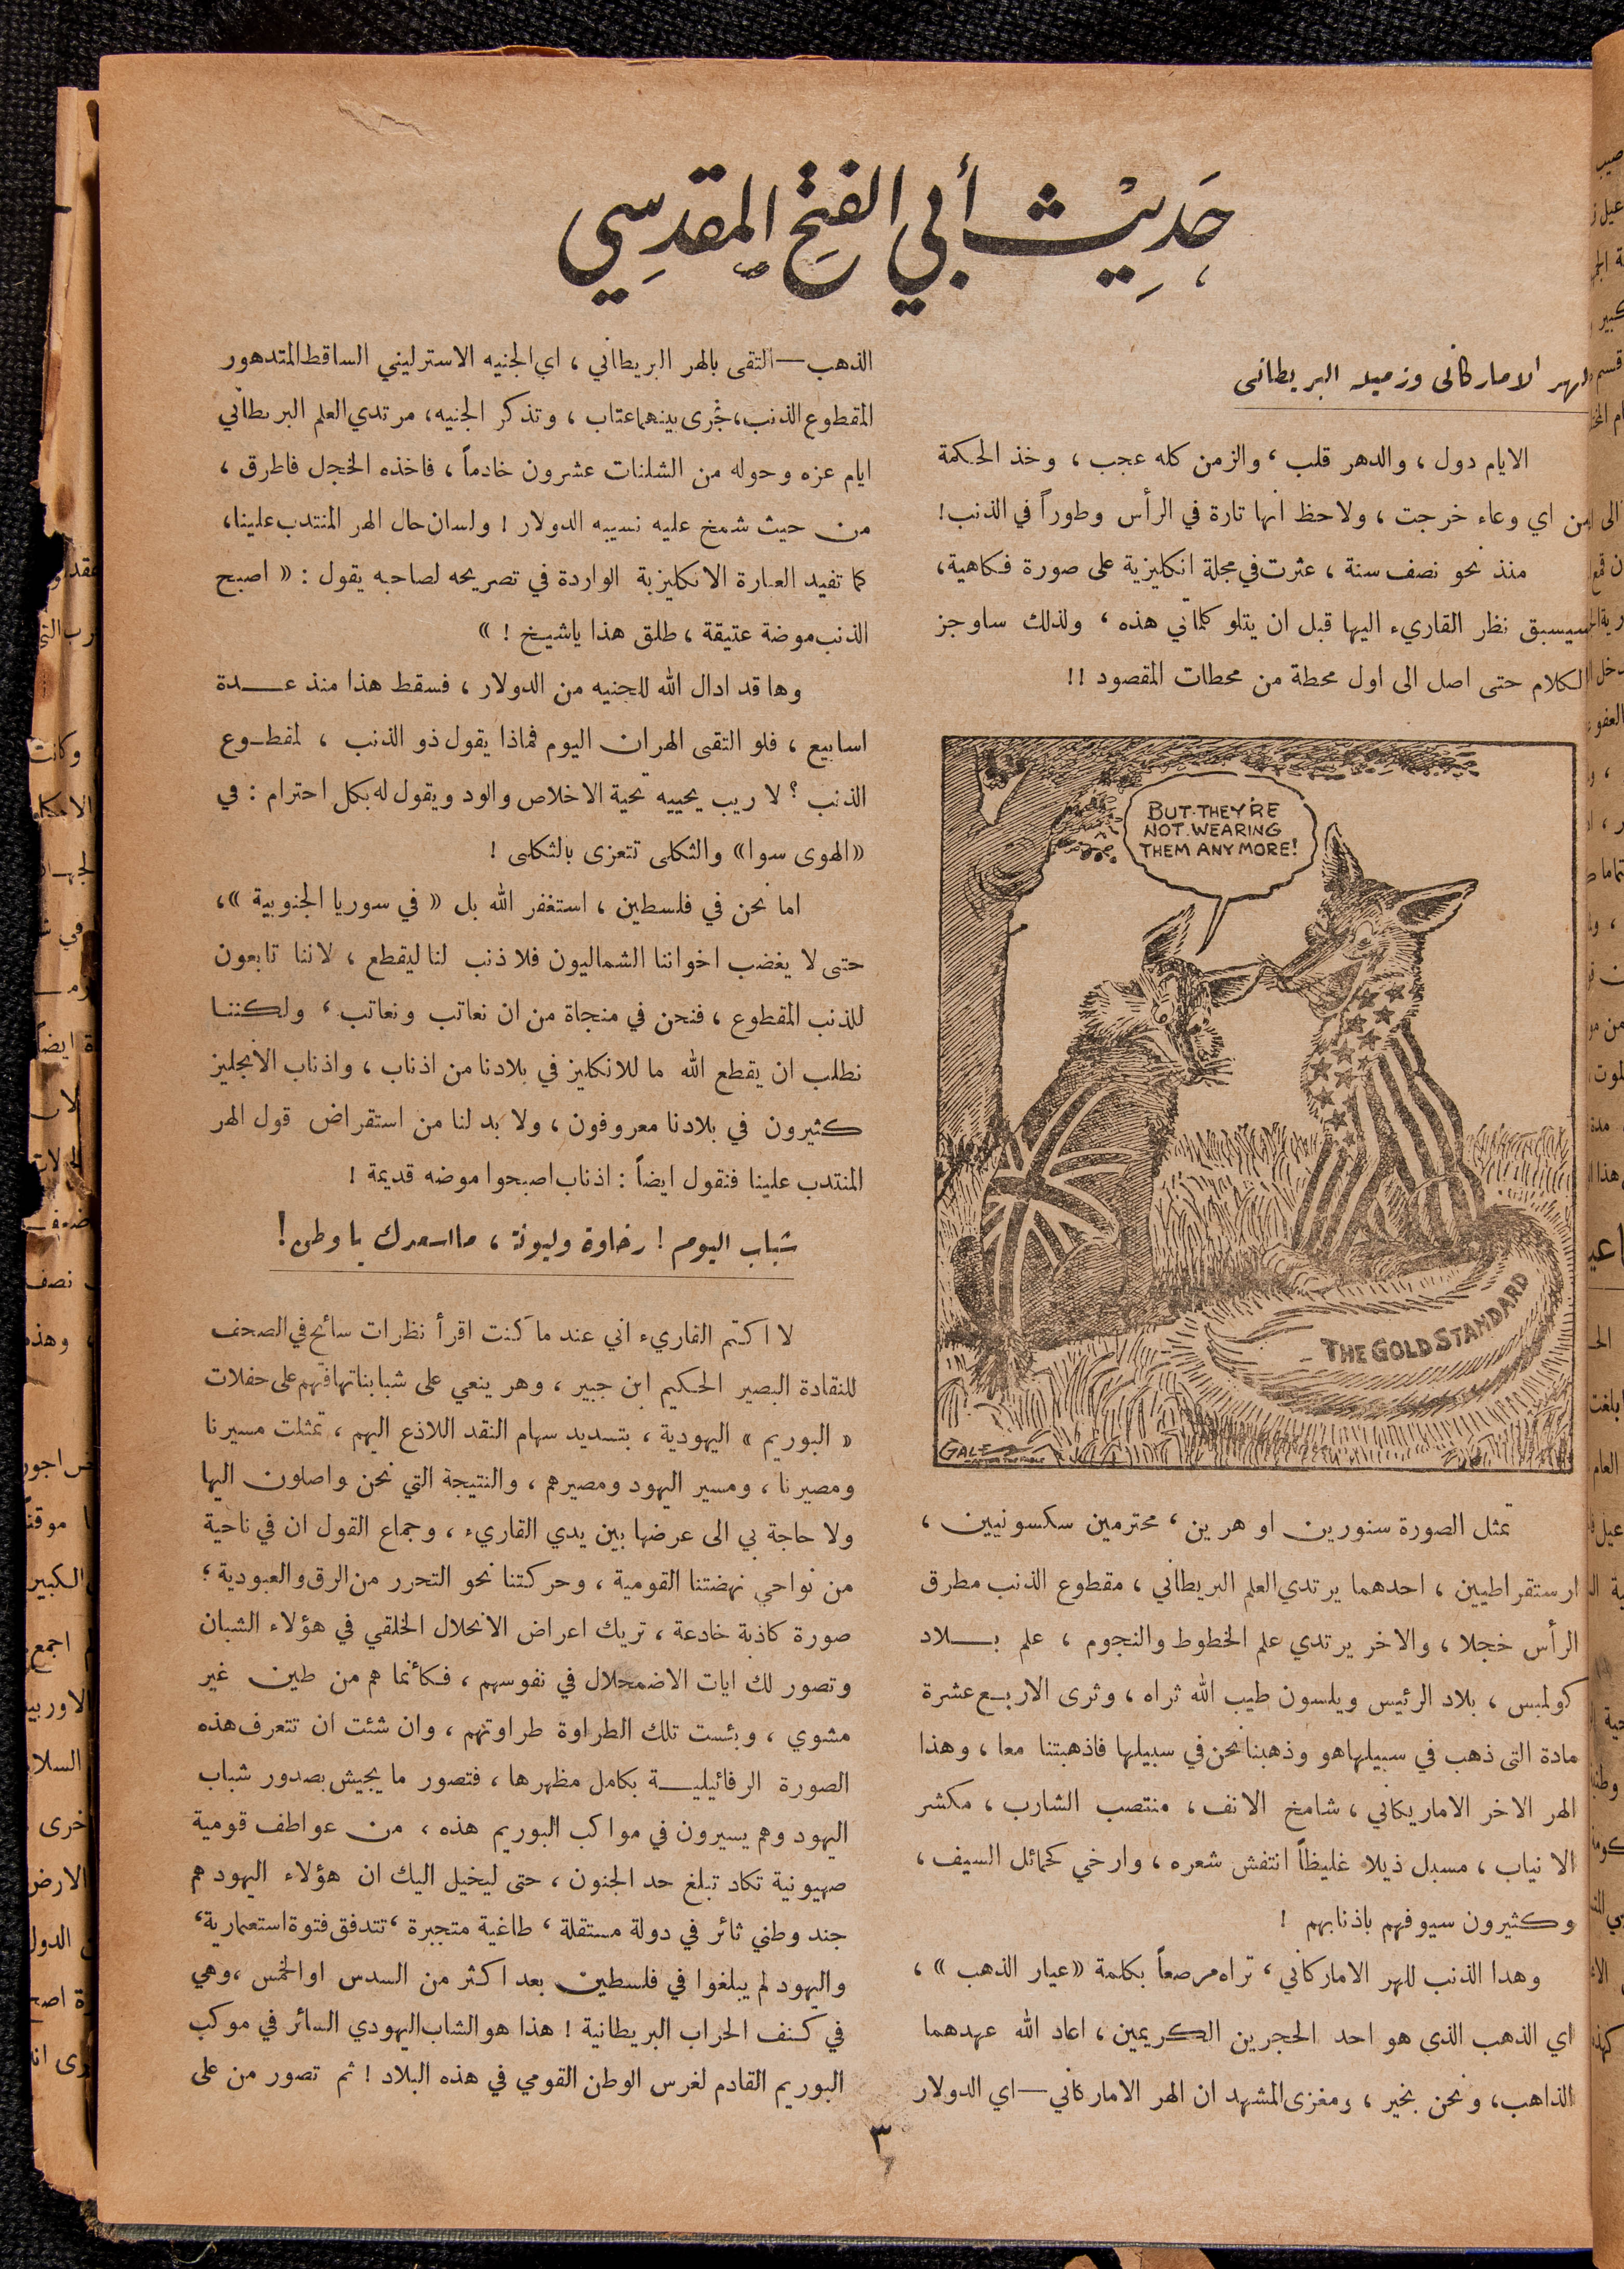 حَدِيْث أبي الفتِح المقدِسِي
الهر الاماركانى وزميله البريطانى
الايام دول ، والدهر قلب ، والزمن كله عجب ، وخذ الحكمة
من اي وعاء خرجت ، ولاحظ انها تارة في الرأس وطوراً في الذنب !
منذ نحو نصف سنة ، عثرت في مجلة انكليزية على صورة فكاهية ،
سيسبق نظر القاريء اليها قبل ان يتلو كلماتي هذه ، ولذلك ساوجز
الكلام حتى اصل الى اول محطة من محطات المقصود !!
BUT THEY'RE
NOT WEARING
THEM ANY MORE!
THE GOLD STANDARD
GALE
تمثل الصورة سنورين او هرين ، محترمين سكسونيين ،
ارستقراطيين ، احدهما يرتدي العلم البريطاني ، مقطوع الذنب مطرق
الرأس خجلا ، والاخر يرتدي علم الخطوط والنجوم ، علم بـــلاد
كولمبس ، بلاد الرئيس ويلسون طيب الله ثراه ، وثرى الاربع عشرة
مادة التى ذهب في سبيلها هو وذهبنا نحن في سبيلها فاذهبتنا معا ، وهذا
الهر الاخر الاماريكاني ، شامخ الانف ، منتصب الشارب ، مكشر
الانياب ، مسبل ذيلا غليظاً انتفش شعره ، وارخي كحمائل السيف ،
وكثيرون سيوفهم باذنابهم !
وهدا الذنب للهر الاماركاني ، تراه مرصعاً بكلمة «عيار الذهب » ،
اي الذهب الذي هو احد الحجرين الكريمين ، اعاد الله عهدهما
الذاهب ، ونحن بخير ، ومغزى المشهد ان الهر الاماركاني — اي الدولار
الذهب — التقى بالهر البريطاني ، اي الجنيه الاسترليني الساقط المتدهور
المقطوع الذنب ، فجرى بينهما عتاب ، وتذكر الجنيه ، مرتدي العلم البريطاني
ايام عزه وحوله من الشلنات عشرون خادماً ، فاخذه الخجل فاطرق ،
من حيث شمخ عليه نسيبه الدولار ! ولسان حال الهر المنتدب علينا ،
كما تفيد العبارة الانكليزية الواردة في تصريحه لصاحبه يقول : « اصبح
الذنب موضة عتيقة ، طلق هذا ياشيخ ! »
وها قد ادال الله للجنيه من الدولار ، فسقط هذا منذ عـــدة
اسابيع ، فلو التقى الهران اليوم فماذا يقول ذو الذنب ، لمقطـوع
الذنب ؟ لا ريب يحييه تحية الاخلاص والود ويقول له بكل احترام : في
«الهوى سوا» والثكلى تتعزى بالثكلى !
اما نحن في فلسطين ، استغفر الله بل « في سوريا الجنوبية » ،
حتى لا يغضب اخواننا الشماليون فلا ذنب لنا ليقطع ، لاننا تابعون
للذنب المقطوع ، فنحن في منجاة من ان نعاتب ونعاتب ، ولكننـا
نطلب ان يقطع الله ما للانكليز في بلادنا من اذناب ، واذناب الانجليز
كثيرون في بلادنا معروفون ، ولا بد لنا من استقراض قول الهر
المنتدب علينا فنقول ايضاً : اذناب اصبحوا موضه قديمة !
شباب اليوم ! رخاوة وليونة ، ما اسعدك يا وطن !
لا اكتم القاريء اني عند ما كنت اقرأ نظرات سائح في الصحف
للنقادة البصير الحكيم ابن جبير ، وهر ينعي على شبابنا تهافتهم على حفلات
« البوريم » اليهودية ، بتسديد سهام النقد اللاذع اليهم ، تمثلت مسيرنا
ومصيرنا ، ومسير اليهود ومصيرهم ، والنتيجة التي نحن واصلون اليها
ولا حاجة بي الى عرضها بين يدي القاريء ، وجماع القول ان في ناحية
من نواحي نهضتنا القومية ، وحركتنا نحو التحرر من الرق والعبودية ؛
صورة كاذبة خادعة ، تريك اعراض الانحلال الخلقي في هؤلاء الشبان
وتصور لك ايات الاضمحلال في نفوسهم ، فكأنما هم من طين غير
مشوي ، وبئست تلك الطراوة طراوتهم ، وان شئت ان تتعرف هذه
الصورة الرفائيليـــة بكامل مظهرها ، فتصور ما يجيش بصدور شباب
اليهود وهم يسيرون في مواكب البوريم هذه ، من عواطف قومية
صهيونية تكاد تبلغ حد الجنون ، حتى ليخيل اليك ان هؤلاء اليهود هم
جند وطني ثائر في دولة مستقلة ، طاغية متجبرة ، تتدفق فتوة استعمارية ،
واليهود لم يبلغوا في فلسطين بعد اكثر من السدس او الخمس ، وهي
في كنف الحراب البريطانية ! هذا هو الشاب اليهودي السائر في موكب
البوريم القادم لغرس الوطن القومي في هذه البلاد ! ثم تصور من على
٣